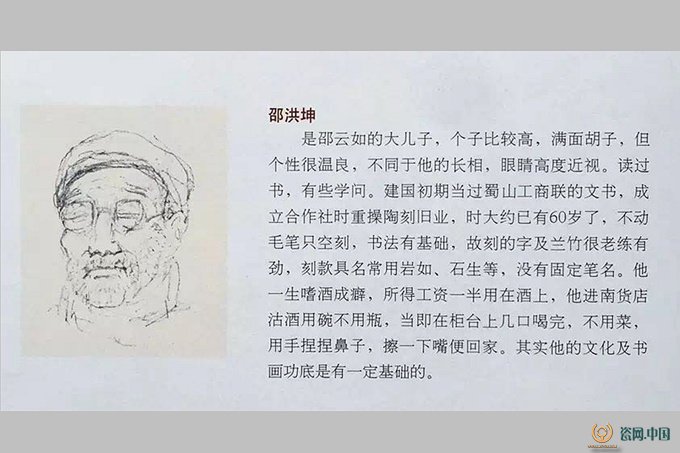 邵洪坤
是邵云如的大儿子，个子比较高，满面胡子，但
个性很温良，不同于他的长相，眼睛高度近视。读过
书，有些学问。建国初期当过蜀山工商联的文书，成
立合作社时重操陶刻旧业，时大约已有60岁了，不动
毛笔只空刻，书法有基础，故刻的字及兰竹很老练有
劲，刻款具名常用岩如、石生等，没有固定笔名。他
一生嗜酒成癖，所得工资一半用在酒上，他进南货店
沽酒用碗不用瓶，当即在柜台上几口喝完，不用菜，
用手捏捏鼻子，擦一下嘴便回家。其实他的文化及书
画功底是有一定基础的。
瓷网.中国